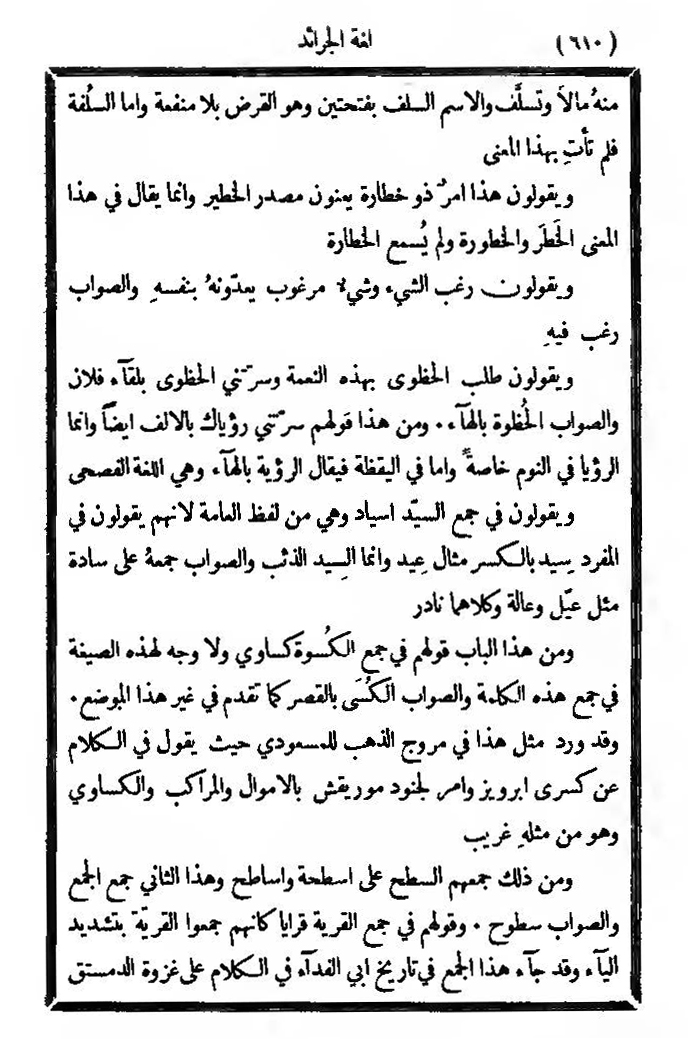 (٦١٠) لغة الجرائد
منهُ مالاً وتسلَّف والاسم السلف بفتحتين وهو القرض بلا منفعة واما السُلفة
فلم تأتِ بهذا المعنى
ويقولون هذا امرٌ ذو خطارة يعنون مصدر الخطير وانما يقال في هذا
المعنى الخَطَر والخطورة ولم يُسمع الخطارة
ويقولون رغب الشيء وشيءٌ مرغوب يعدّونهُ بنفسهِ والصواب
رغب فيهِ
ويقولون طلب الحظوى بهذه النعمة وسرّتني الحظوى بلقآء فلان
والصواب الحُظوة بالهآء . ومن هذا قولهم سرّتني رؤياك بالالف ايضاً وانما
الرؤيا في النوم خاصةً واما في اليقظة فيقال الرؤية بالهآء وهي اللغة الفصحى
ويقولون في جمع السيّد اسياد وهي من لفظ العامة لانهم يقولون في
المفرد سِيد بالكسر مثال عِيد وانما السِيد الذئب والصواب جمعهُ على سادة
مثل عيّل وعالة وكلاهما نادر
ومن هذا الباب قولهم في جمع الكُسوة كساوي ولا وجه لهذه الصيغة
في جمع هذه الكلمة والصواب الكُسَى بالقصر كما تقدم في غير هذا الموضع .
وقد ورد مثل هذا في مروج الذهب للمسعودي حيث يقول في الكلام
عن كسرى ابرويز وامر لجنود موريقش بالاموال والمراكب والكساوي
وهو من مثلهِ غريب
ومن ذلك جمعهم السطح على اسطحة واساطح وهذا الثاني جمع الجمع
والصواب سطوح . وقولهم في جمع القرية قرايا كانهم جمعوا القريّة بتشديد
اليآء وقد جآء هذا الجمع في تاريخ ابي الفدآء في الكلام على غزوة الدمستق